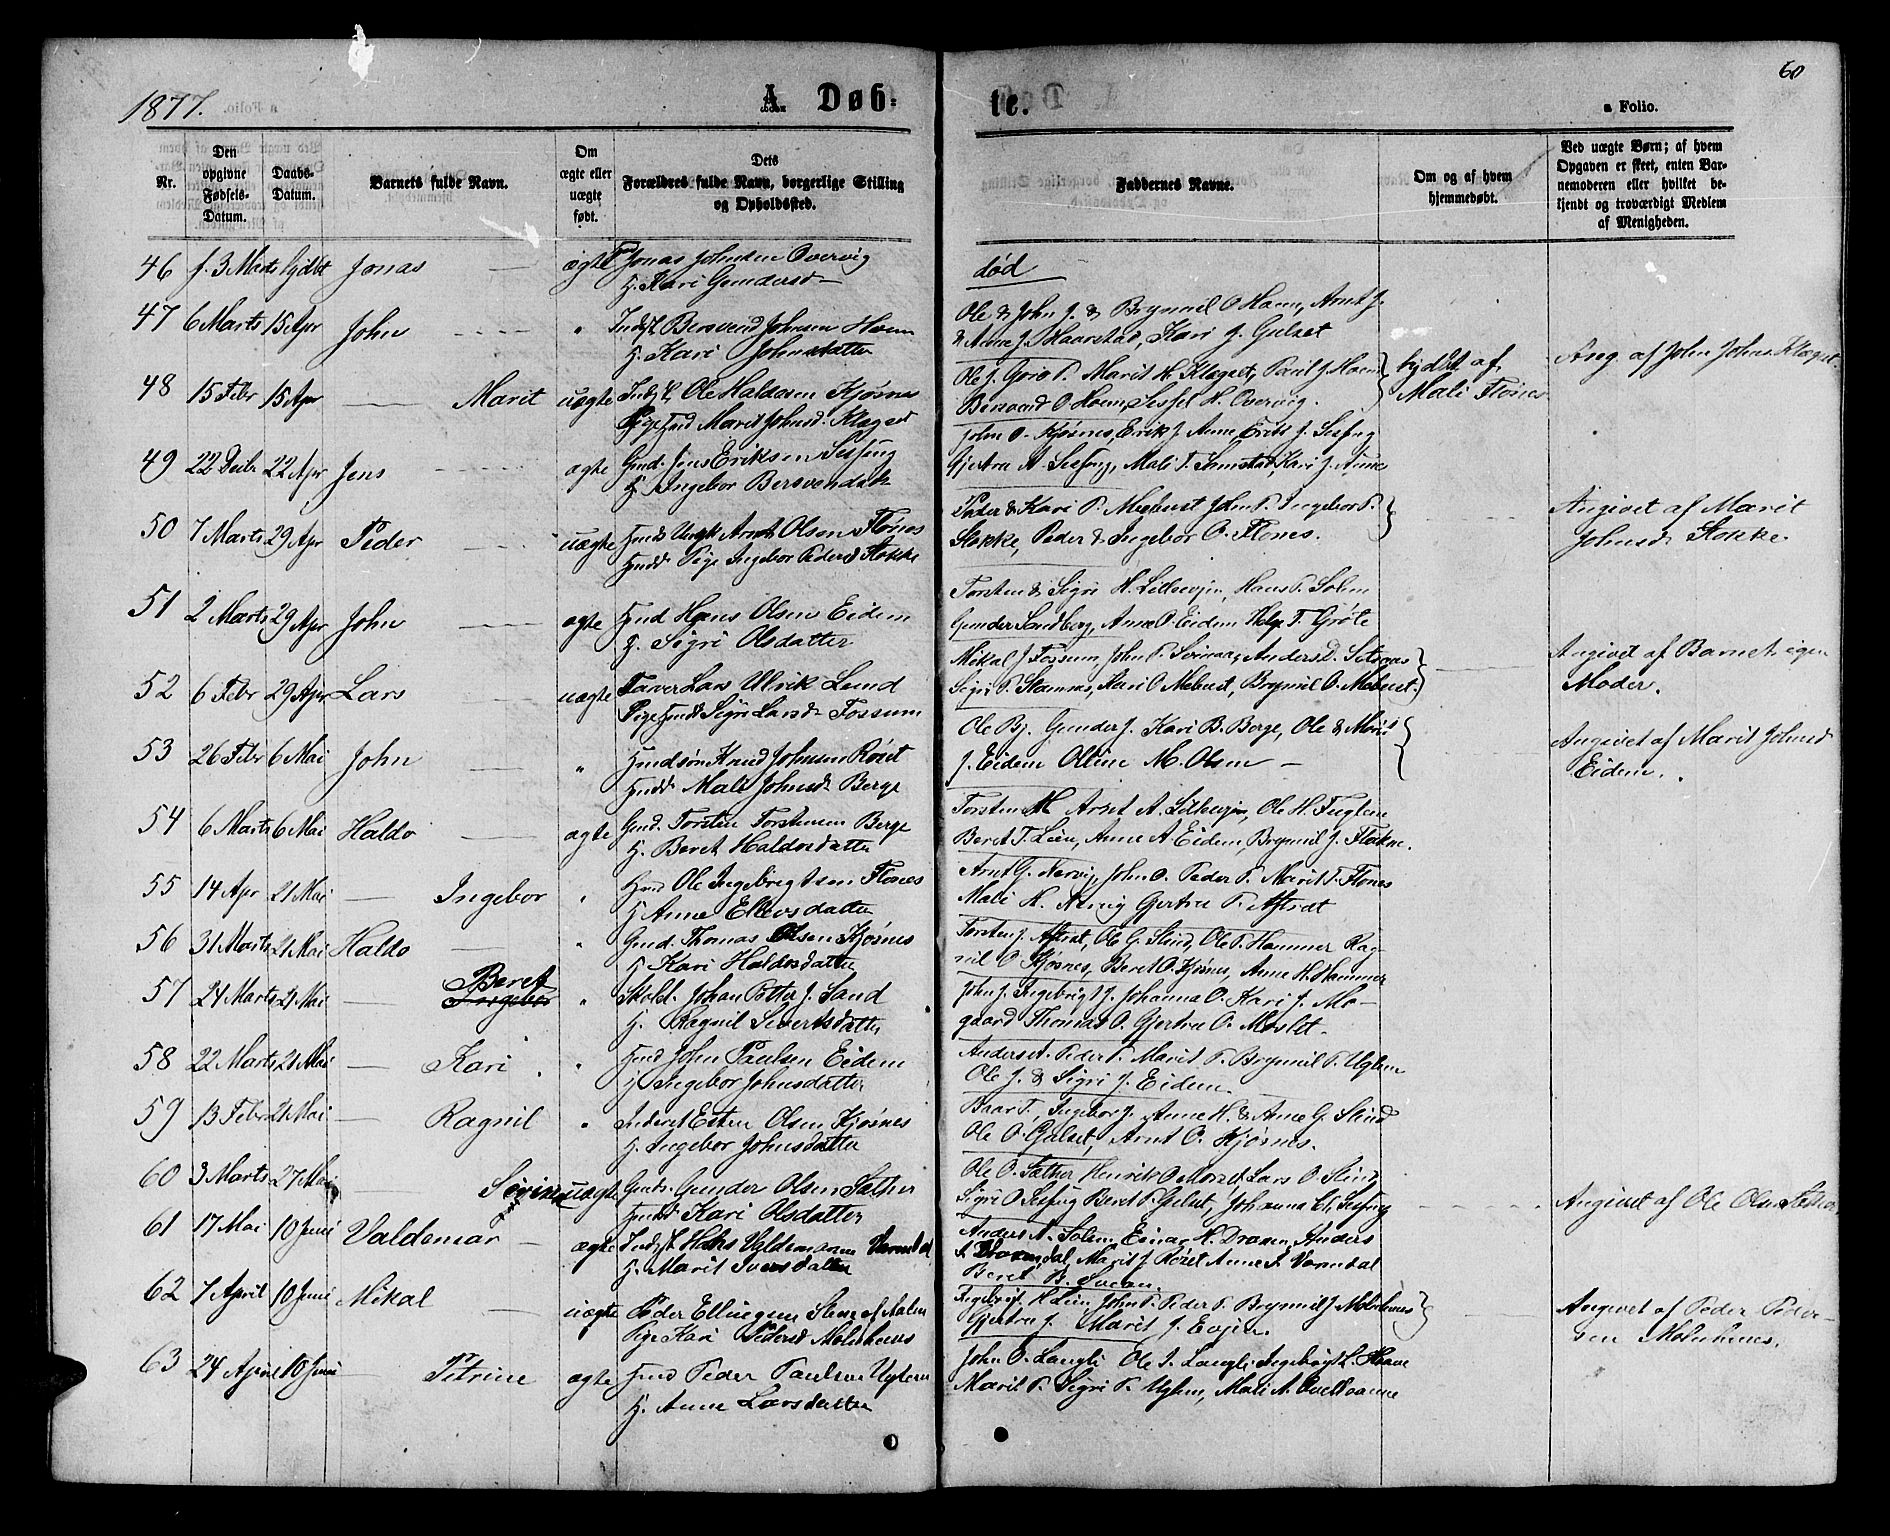 1877.
A. Døb-
te.
60
a Folio.
Nr.
Den opgivne Fødsels-Datum.
Daabs-Datum.
Barnets fulde Navn.
Om ægte eller uægte født.
Dets Forældres fulde Navn, borgerlige Stilling og Opholdssted.
Faddernes Navne.
Om og af hvem hjemmedøbt.
Ved uægte Børn; af hvem Opgaven er skeet, enten Barnemoderen eller hvilket bekjendt og troværdigt Medlem af Menigheden.
46 f. 3 Marts hjdbt Jonas ægte Jonas Johnsen Overvig
H. Kari Gundersd
død
47 6 Marts 15 Apr John " Indst Bersvend Johnsen Hoem
H. Kari Johnsdatter
Ole & John J. & Brynnil O Hoem, Arnt J.
& Anne J. Maarstad, Kari J. Gulset
48 15 Febr 15 Apr Marit uægte Ole Haldosen Kjøsnes
Pige Marit Johnsd. Klegset
Ole J. Goro P. Marit H. Klegset, Paul J. Hoem
Bersvend O Hoem, Sissel H. Overvig.
hjdbt af Mali Flønes
Ang. af John Johns. Klegset.
49 22 Decbr 22 Apr Jens ægte Gmd. Jens Eriksen Sesseng
H. Ingebor Bersvendsdt
John O. Kjøsnes, Erik J. Anne, Erik J. Sesseng
Gjertru A. Sesseng, Mali T. Kari J. Aunes
50 7 Marts 29 Apr Peder uægte Ungk Arnt Olsen Flønes
Pige Ingebor Pedersd Stokke
Peder & Kari P. Mebust John P. Ingebor P.
Stokke, Peder & Ingebor O. Flønes.
Angivet af Marit
Johnsd. Stokke.
51 2 Marts 29 Apr John ægte Hmd Hans Olsen Eidem
H. Sigri Olsdatter
Torsten & Sigri H. Lillevjen, Hans P. Solem
Gunder Sandberg, Anne O. Eidem Helge T. Grøte
52 6 Febr 29 Apr Lars uægte Farver Lars Ulrik Lund
Pige Sigri Larsd. Fossum
Mikal J Fossum, John P. Svinaas, Anders D. Setsaas
Sigri P. Stamnes, Kari O. Mebust, Brynnil O. Mebust.
Angivet af Barnets egen
Moder.
53 26 Febr 6 Mai John " Knud Johnsen Røset
Mali Johnsd. Berge
Ole Bj. Gunder J. Kari B. Berge, Ole & Marit
J. Eidem Oline M. Olsen
Angivet af Marit Johnsd
Eidem.
54 6 Marts 6 Mai Haldo ægte Gmd. Torsten Torstensen Berge
H. Beret Haldosdatter
Torsten H. Arnt A. Lillevjen, Ole H. Fuglem
Beret T. Lien, Anne A. Eidem, Brynnil J. Flakne.
55 14 Apr 21 Mai Ingebor " Hmd Ole Ingebrigtsen Flønes
H. Anne Ellevsdatter
Arnt G. Nervig, John O. Peder P. Marit P. Flønes
Mali H. Nervig Gjertru P. Aftret
56 31 Marts 21 Mai Haldo " Gmd. Thomas Olsen Kjøsnes
H. Kari Haldosdatter
Torsten J. Aftret, Ole G. Slind, Ole P. Hammer Rag-
nil O. Kjøsnes, Beret O. Kjøsnes, Anne H. Hammer
57 24 Marts 21 Mai Beret Ingebor " Skoleh. Johan Petter J. Sand
H. Ragnil Sivertsdatter
John J. Ingebrigt J. Johanna O. Kari J. Mo-
gaard Thomas O. Gjertru O. Moslet.
58 22 Marts 21 Mai Kari " Hmd John Paulsen Eidem
H. Ingebor Johnsdatter
Anders P. Peder P. Marit P. Brynnil P. Uglem
Ole J. & Sigri J. Eidem.
59 13 Febr 21 Mai Ragnil " Inderst Esten Olsen Kjøsnes
H. Ingebor Johnsdatter
Baar T., Ingebor J. Anne H. & Anne G. Slind
Ole O. Gulset, Arnt O. Kjøsnes.
60 3 Marts 27 Mai uægte Gmds. Gunder Olsen Sæther
Kari Olsdatter
Ole O. Sæther Henrik O Morset, Lars O. Slind
Sigri O. Sesseng Beret P. Gulset, Johanna El. Sesseng
Angivet af Ole Olsen Sæther.
61 17 Mai 10 Juni Valdemar ægte Indst Hans Valdemar
H. Marit Iversdatter
Anders A. Solem, Einar H. Draxen, Anders
Marit J. Røset Anne
Beret B.
62 7 April 10 Juni Mikal uægte Peder Ellingsen Stene af Aalen
Pige Kari Pedersd Molnhuus
Ingebrigt H Lien, John P. Peder P. Brynnil J. Molnhuus
Gjertru J. Marit J. Evjen.
Angivet af Peder Peder-
sen Molnhuus.
63 24 April 10 Juni Petrine ægte Hmd Peder Paulsen Uglem
H. Anne Larsdatter
John O. Langli Ole J. Langli, Ingebrigt L.
Marit P. Sigri P. Uglem, Mali A.